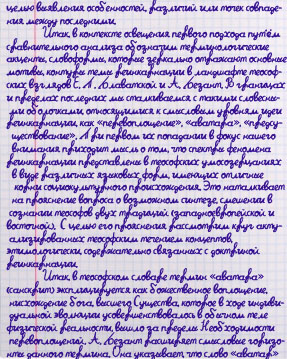 целью выявления особенностей, различий или точек совпаде-
ния между последними.
Итак, в контексте освещения первого подхода путём
сравнительного анализа обозначим терминологические
акценты, словоформы, которые зеркально отражают основные
мотивы, контуры темы реинкарнации в ландшафте теософ-
ских взглядов Е. П. Блаватской и А. Безант. В границах
и пределах последних мы сталкиваемся с такими словесны-
ми оболочками, относящимися к смысловым уровням идеи
реинкарнации, как «перевоплощение», «аватара», «предсу-
ществование». При первом их попадании в фокус нашего
внимания приходит мысль о том, что спектры феномена
реинкарнации представлены в теософских умозрениях
в виде различных языковых форм, имеющих отличные
корни социокультурного происхождения. Это наталкивает
на прояснение вопроса о возможном синтезе, смешении в
сознании теософов двух традиций (западноевропейской и
восточной). С целью его прояснения рассмотрим круг акту-
ализированных теософским течением концептов,
этимологически, содержательно связанных с доктриной
реинкарнации.
Итак, в теософском словаре термин «аватара»
(санскрит) эксплицируется как божественное воплощение,
нисхождение бога, высшего Существа, которое в ходе индиви-
дуальной эволюции усовершенствовалось в обители теле
физической реальности, вышло за пределы Необходимости
перевоплощений. А. Безант расширяет смысловые горизо-
нты данного термина. Она указывает, что слово «аватара»